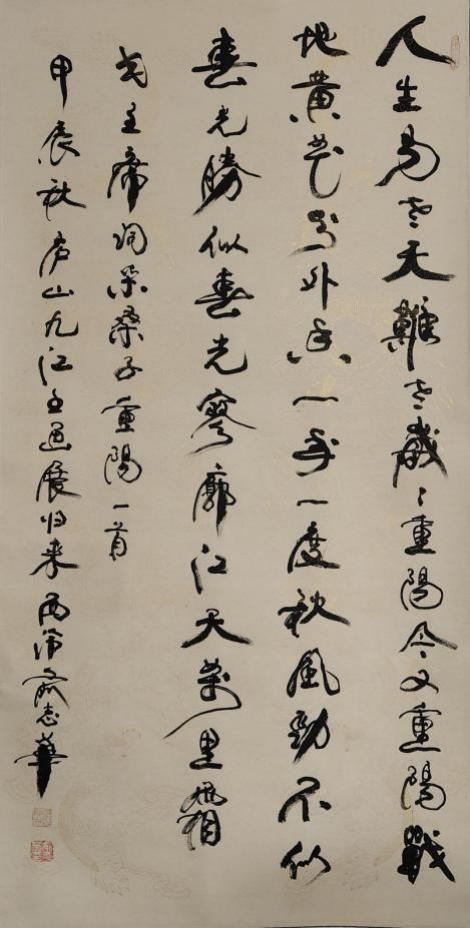 人生易老天難老歲〻重陽今又重陽戰
地黄花分外香一年一度秋風勁不似
春光勝似春光寥廓江天萬里霜
毛主席词采桑子重陽一首
甲辰秋庐山九江展归来志華